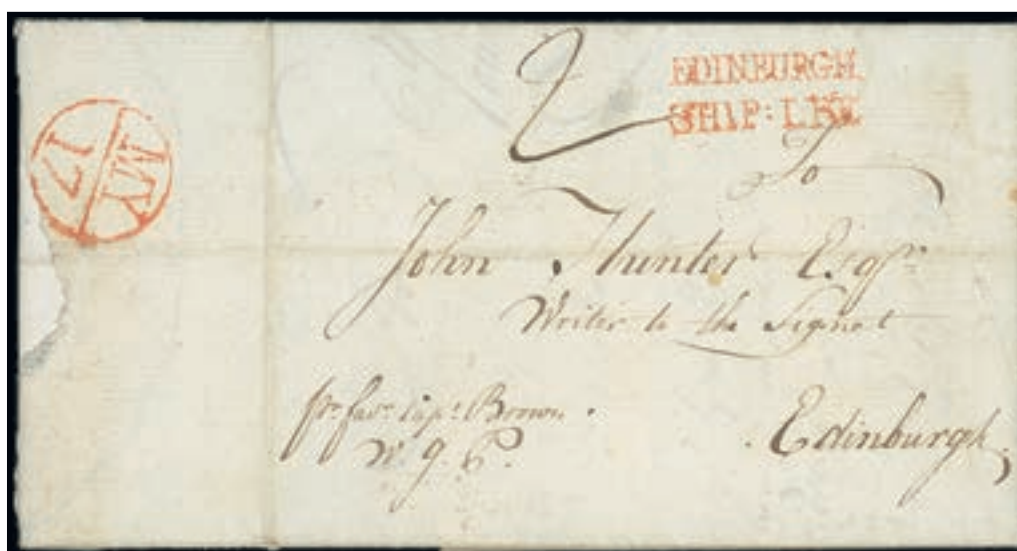 2
EDINBURGH
SHIP: LRE
To
John Hunter Esqr.
Writer to the Signet
pr. favr. Capt. Brown.
W. G. P.
Edinburgh
MY
17